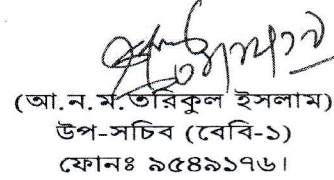 (আ.ন.ম.তরিকুল ইসলাম)
উপ-সচিব (বেবি-১)
ফোনঃ ৯৫৪৯১৭৬।